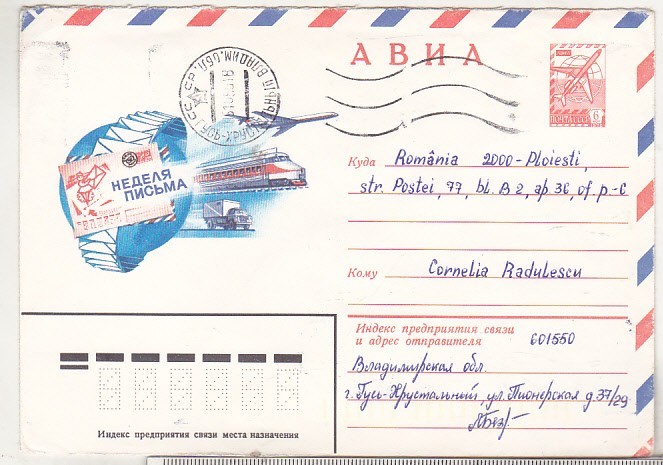 АВИА
ПОЧТА СССР 6
НЕДЕЛЯ
ПИСЬМА
Куда România 2000-Ploiesti,
str. Postei, 77, bl. B2, ap 36, of. p-6
Кому Cornelia Radulescu
Индекс предприятия связи
и адрес отправителя 601550
Владимирская обл.
г. Гусь-Хрустальный, ул. Пионерская д 37/29
Индекс предприятия связи места назначения